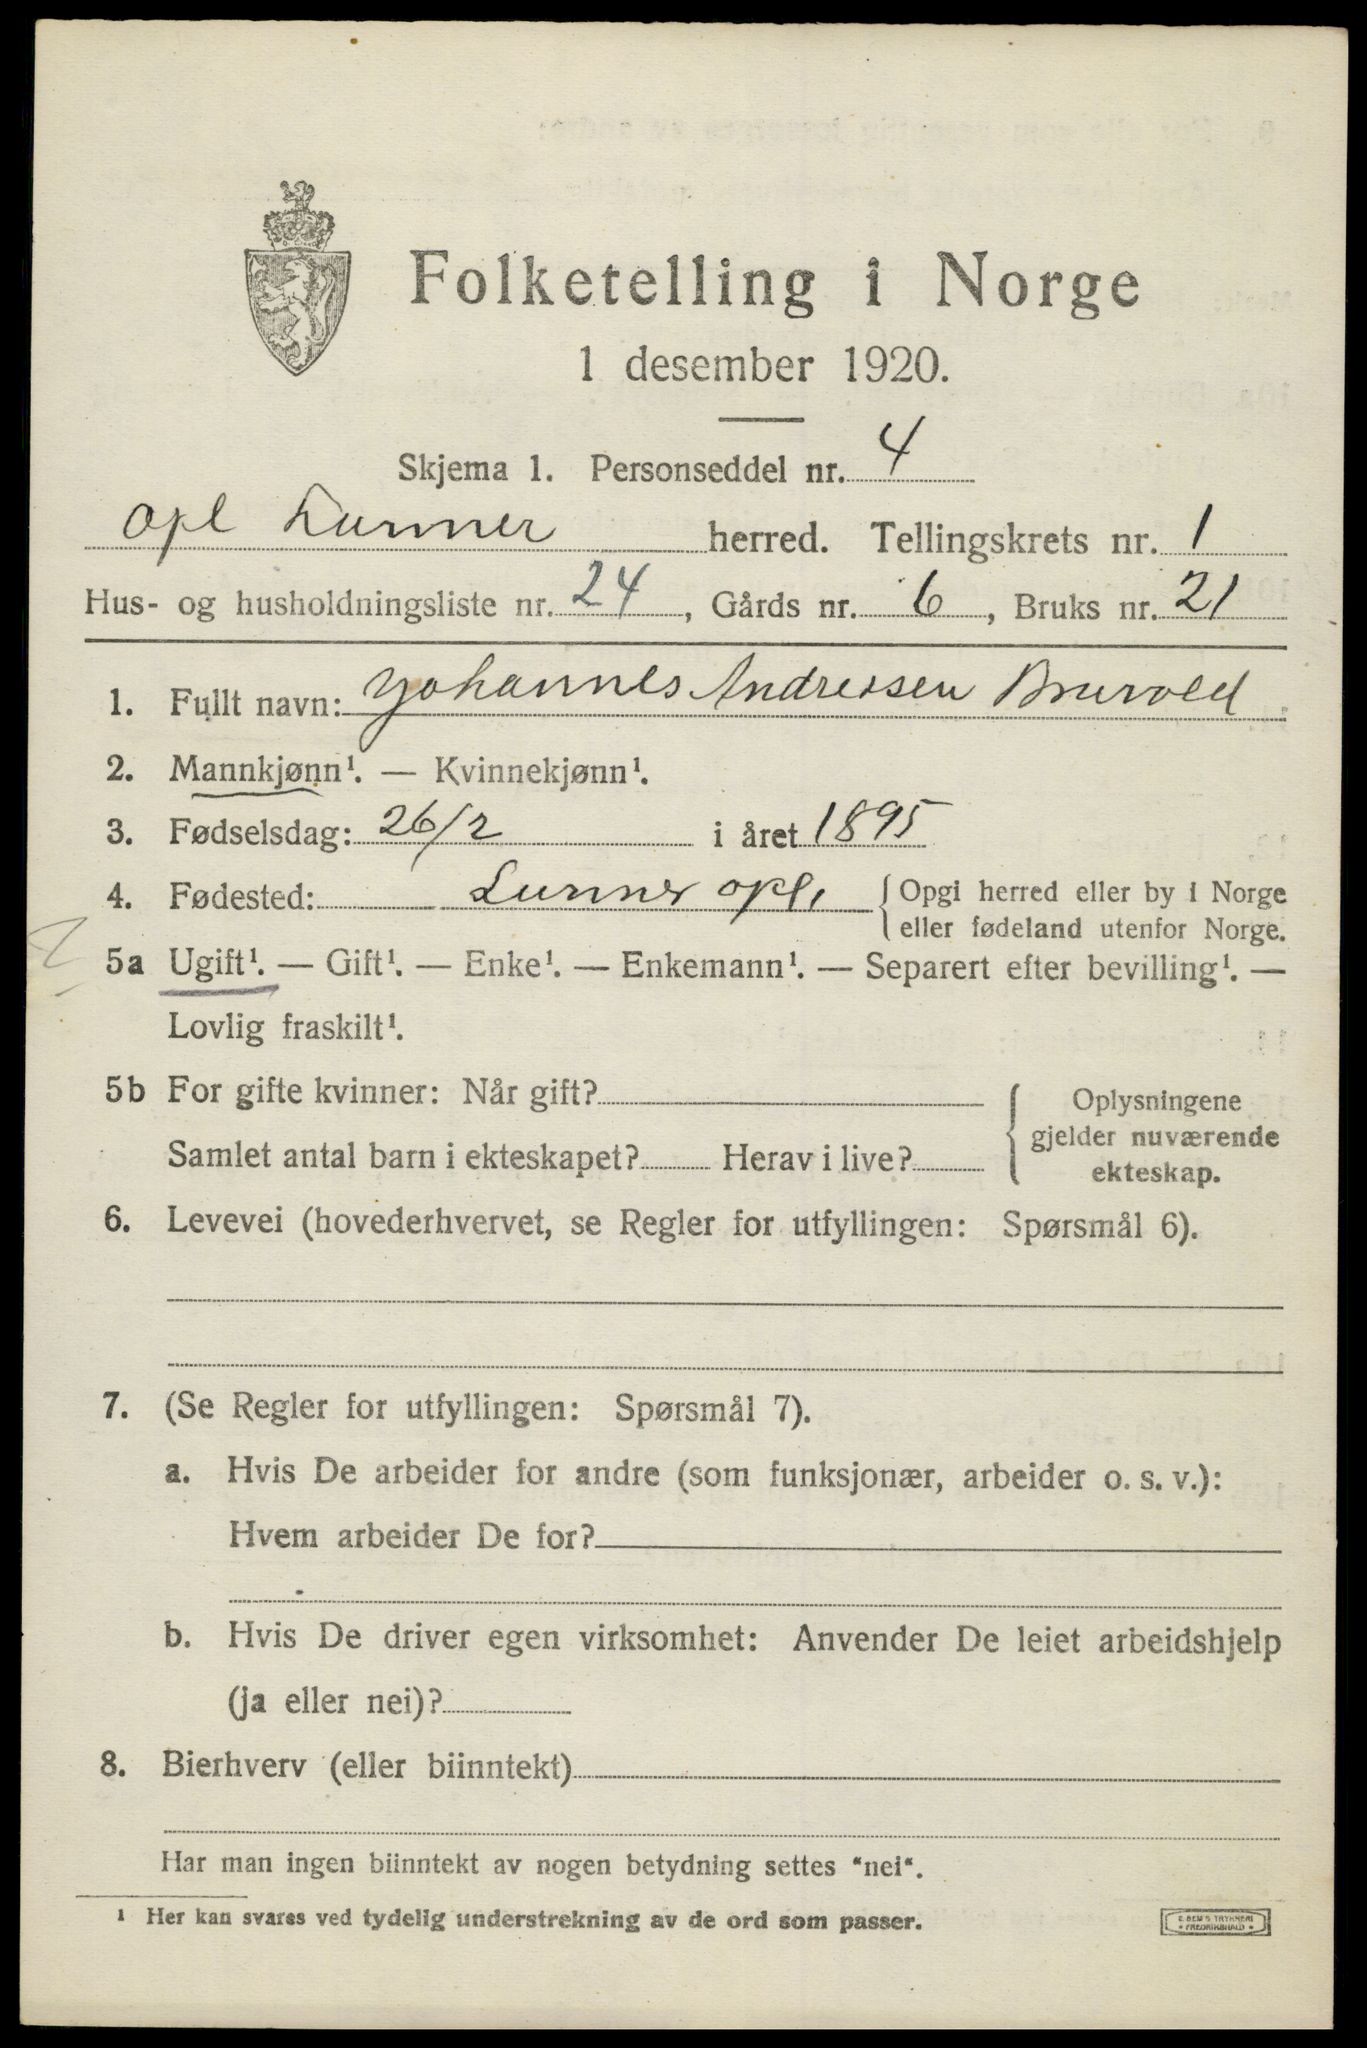 Folketelling i Norge
1 desember 1920.
Skjema 1. Personseddel nr. 4
Opl Lunner herred. Tellingskrets nr. 1
Hus- og husholdningsliste nr. 24, Gårds nr. 6, Bruks nr. 21
1. Fullt navn: Johannes Andressen Bruvold
2. Mannkjønn¹. — Kvinnekjønn¹.
3. Fødselsdag: 26/2 i året 1895
4. Fødested: Lunner opl. Opgi herred eller by i Norge
eller fødeland utenfor Norge.
5a Ugift¹. — Gift¹. — Enke¹. — Enkemann¹. — Separert efter bevilling¹. —
Lovlig fraskilt¹.
5b For gifte kvinner: Når gift?
Samlet antal barn i ekteskapet? Herav i live?
Oplysningene
gjelder nuværende
ekteskap.
6. Levevei (hovederhvervet, se Regler for utfyllingen: Spørsmål 6).
7. (Se Regler for utfyllingen: Spørsmål 7).
a. Hvis De arbeider for andre (som funksjonær, arbeider o. s. v.):
Hvem arbeider De for?
b. Hvis De driver egen virksomhet: Anvender De leiet arbeidshjelp
(ja eller nei)?
8. Bierhverv (eller biinntekt)
Har man ingen biinntekt av nogen betydning settes "nei".
¹ Her kan svares ved tydelig understrekning av de ord som passer.
E. SEM'S TRYKKERI
FREDRIKSHALD